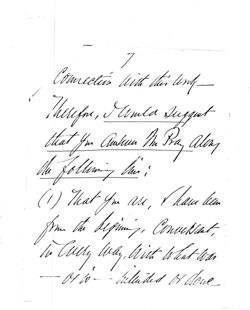 7
Connection with this work —
Therefore, I would suggest
that you answer Mr Pray along
the following line:
(1) That you are, & have been
from the beginning, conversant,
in every way, with what was
— or is — intended or done —